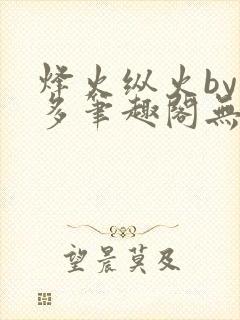 烽火纵火by
多笔趣阁無
望晨莫及